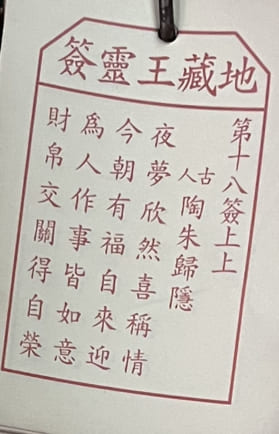 地藏王靈簽
第十八簽上上
古人陶朱歸隱
夜夢欣然喜稱情
今朝有福自來迎
為人作事皆如意
財帛交關得自榮